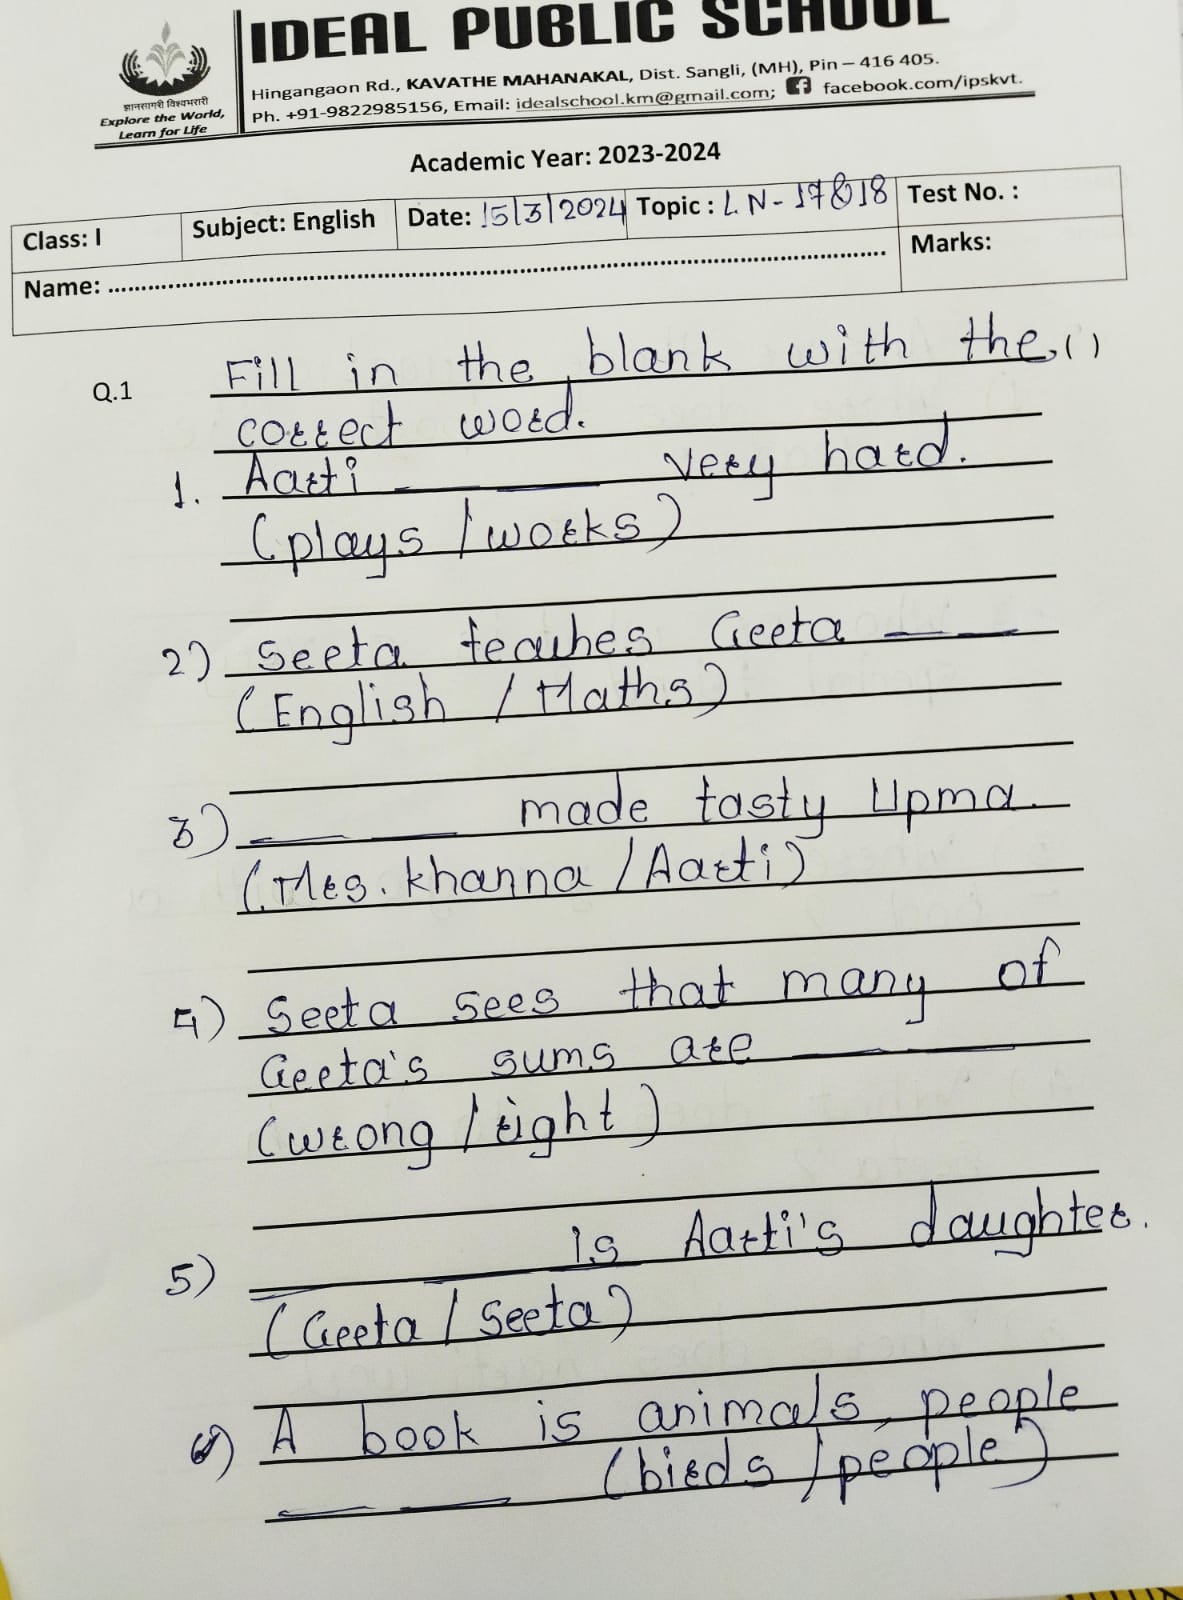 IDEAL PUBLIC SCHOOL
Hingangaon Rd., KAVATHE MAHANAKAL, Dist. Sangli, (MH), Pin – 416 405.
Ph. +91-9822985156, Email: idealschool.km@gmail.com; facebook.com/ipskvt.
ज्ञानसागरी विश्वभरारी
Explore the World,
Learn for Life
Academic Year: 2023-2024
Class: I Subject: English Date: 15/3/2024 Topic : L N - 17 & 18 Test No. :
Name: .......... Marks:
Q.1 Fill in the blank with the ( )
correct word.
1. Aarti ___ ___ very hard.
(plays / works)
2) Seeta teaches Geeta ___ ___
(English / Maths)
3) ___ ___ made tasty Upma.
(Mrs. khanna / Aarti)
4) Seeta sees that many of
Geeta's sums are ___ ___
(wrong / right)
5) ___ ___ is Aarti's daughter.
(Geeta / Seeta)
6) A book is animals, people
___ ___ (birds / people)